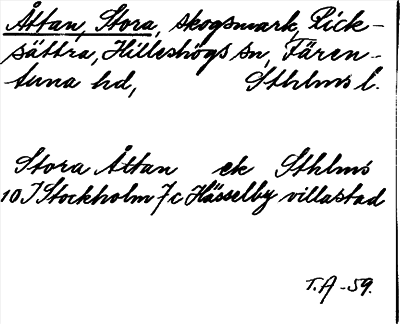 Åttan, Stora, skogsmark, Rick-
sättra, Hilleshögs sn, Fären-
tuna hd, Sthlms l.
Stora Åttan ek Sthlms
10 I Stockholm 7c Hässelby villastad
T.A -59.